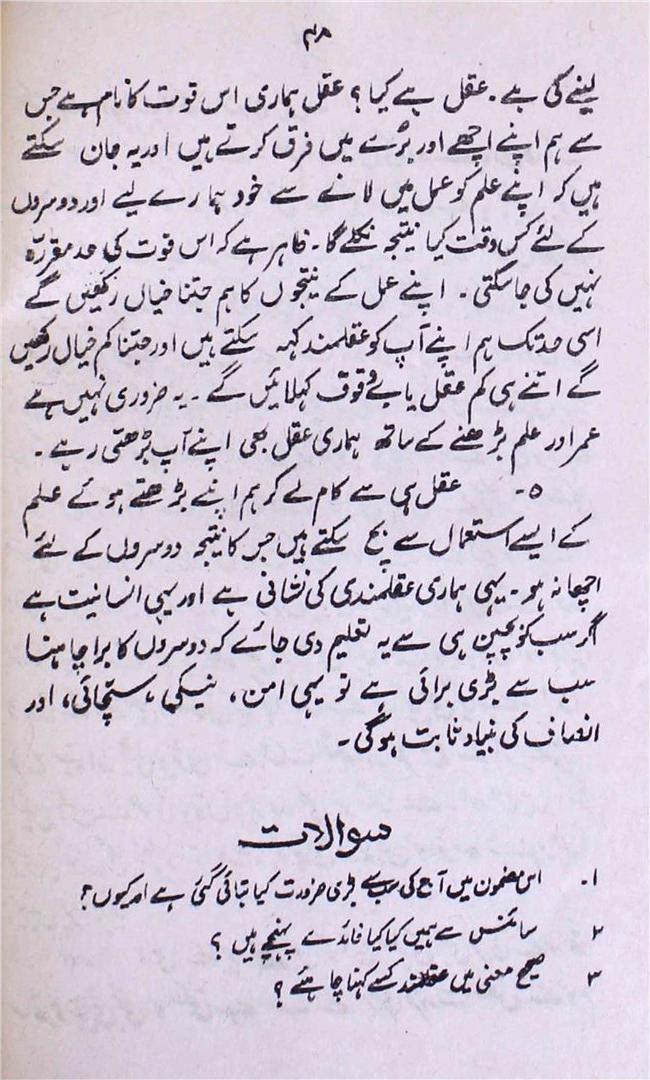 ۴۸
لینے کی ہے۔ عقل ہے کیا؟ عقل ہماری اس قوت کا نام ہے جس
سے ہم اپنے اچھے اور بڑے میں فرق کرتے ہیں اور یہ جان سکتے
ہیں کہ اپنے علم کو عمل میں لانے سے خود ہمارے لیے اور دوسروں
کے لئے کس وقت کیا نتیجہ نکلے گا۔ ظاہر ہے کہ اس قوت کی حد مقررہ
نہیں کی جا سکتی۔ اپنے عمل کے نتیجوں کا ہم جتنا خیال رکھیں گے
اسی حد تک ہم اپنے آپ کو عقلمند کہہ سکتے ہیں اور جتنا کم خیال رکھیں
گے اتنے ہی کم عقل یا بے وقوف کہلائیں گے۔ یہ ضروری نہیں ہے
عمر اور علم بڑھنے کے ساتھ ہماری عقل بھی اپنے آپ بڑھتی رہے۔
۵۔ عقل ہی سے کام لے کر ہم اپنے بڑھتے ہوئے علم
کے ایسے استعمال سے بچ سکتے ہیں جس کا نتیجہ دوسروں کے لئے
اچھا نہ ہو۔ یہی ہماری عقلمندی کی نشانی ہے اور یہی انسانیت ہے
گر سب کو بچپن ہی سے یہ تعلیم دی جائے کہ دوسروں کا برا چاہنا
سب سے بڑی برائی ہے تو یہی امن، نیکی، سچائی، اور
انصاف کی بنیاد ثابت ہوگی۔
سوالات
۱۔ اس مضمون میں آج کی سب سے بڑی ضرورت کیا بتائی گئی ہے اور کیوں؟
۲ سائنس سے ہمیں کیا کیا فائدے پہنچے ہیں؟
۳ صحیح معنی میں عقلمند کسے کہنا چاہئے؟